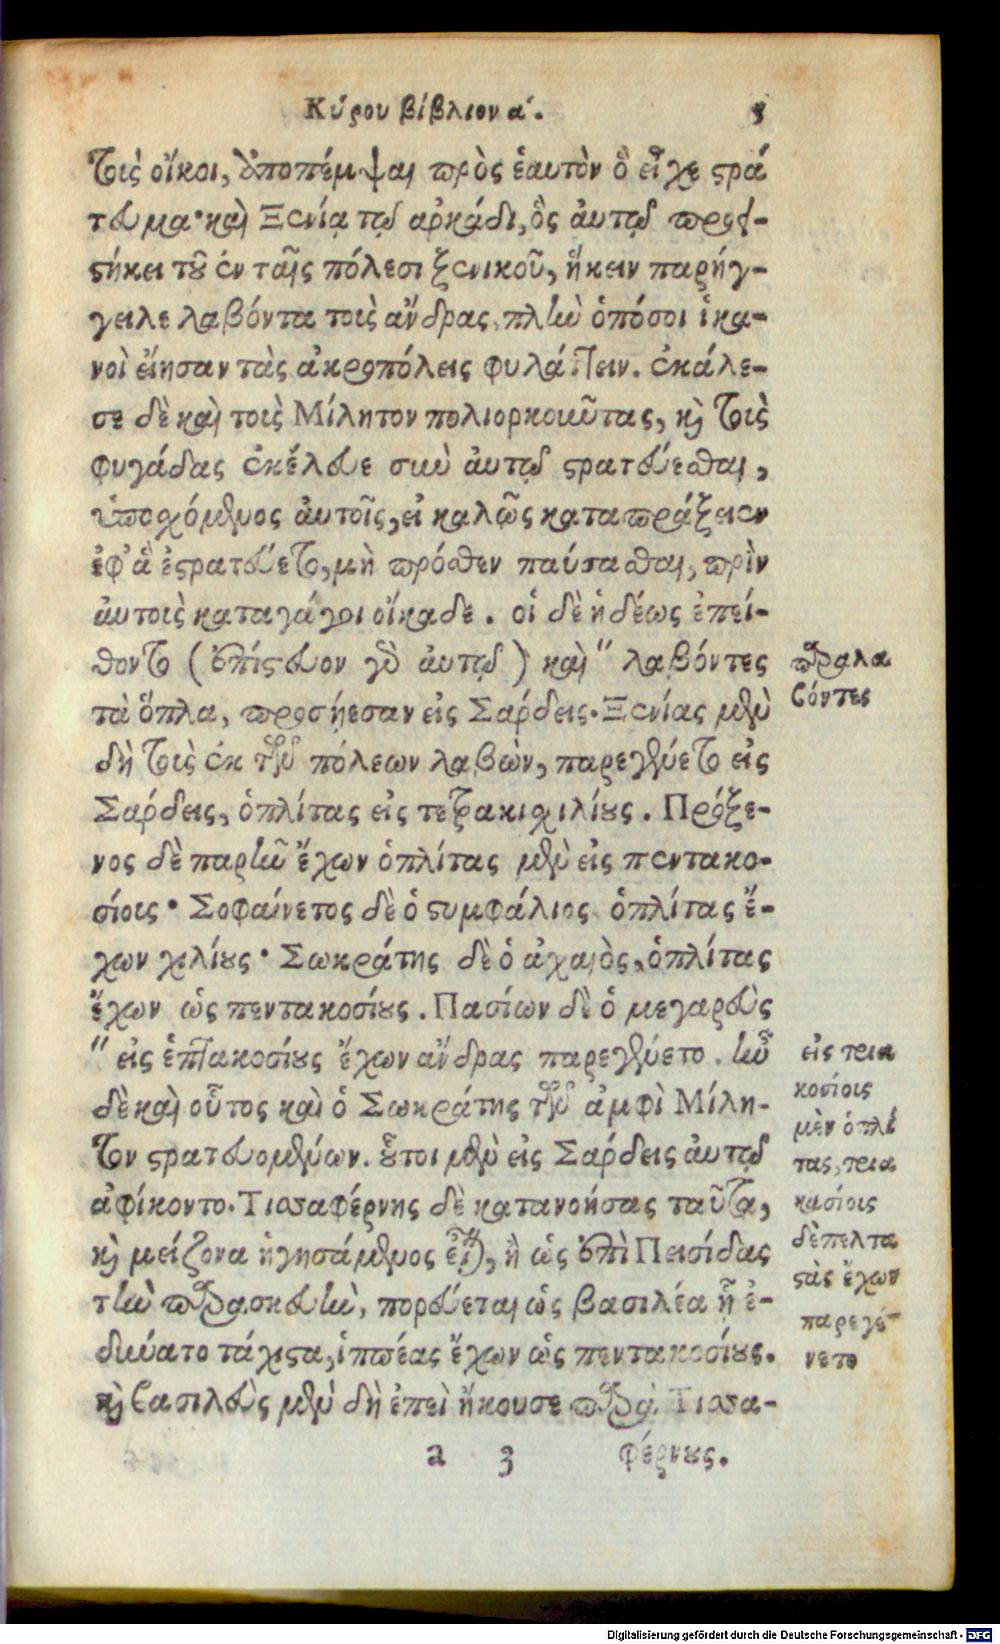 Κύρου βίβλιον α΄. 3
τοὺς οἴκοι, ἀποπέμψαι πρὸς ἑαυτὸν ὃ εἶχε στρά
τευμα· καὶ Ξενίᾳ τῷ ἀρκάδι, ὃς αὐτῷ προς-
στήκει τοῦ ἐν ταῖς πόλεσι ξενικοῦ, ἥκειν παρήγ-
γειλε λαβόντα τοὺς ἄνδρας, πλὴν ὁπόσοι ἱκα-
νοὶ εἴησαν τὰς ἀκροπόλεις φυλάττειν. ἐκάλε-
σε δὲ καὶ τοὺς Μίλητον πολιορκοῦντας, καὶ τοὺς
φυγάδας ἐκέλευε σὺν αὐτῷ στρατεύεσθαι,
ὑποσχόμενος αὐτοῖς, εἰ καλῶς καταπράξειεν
ἐφ' ἃ ἐστρατεύετο, μὴ πρόσθεν παύσασθαι, πρὶν
αὐτοὺς καταγάγοι οἴκαδε. οἱ δὲ ἡδέως ἐπεί-
θοντο (ἐπίστευον γὰρ αὐτῷ) καὶ " λαβόντες
τὰ ὅπλα, προσῄεσαν εἰς Σάρδεις. Ξενίας μὲν
δὴ τοὺς ἐκ τῶν πόλεων λαβὼν, παρεγένετο εἰς
Σάρδεις, ὁπλίτας εἰς τετρακιχιλίους. Πρόξε-
νος δὲ παρῆν ἔχων ὁπλίτας μὲν εἰς πεντακο-
σίους· Σοφαίνετος δὲ ὁ στυμφάλιος ὁπλίτας ἔ-
χων χιλίους· Σωκράτης δὲ ὁ ἀχαιὸς, ὁπλίτας
ἔχων ὡς πεντακοσίους. Πασίων δὲ ὁ μεγαρεὺς
" εἰς ἑπτακοσίους ἔχων ἄνδρας παρεγένετο. ἦν
δὲ καὶ οὗτος καὶ ὁ Σωκράτης τῶν ἀμφὶ Μίλη-
τον στρατευομένων. οὗτοι μὲν εἰς Σάρδεις αὐτῷ
ἀφίκοντο. Τισσαφέρνης δὲ κατανοήσας ταῦτα,
καὶ μείζονα ἡγησάμενος εἶναι, ἢ ὡς ἐπὶ Πεισίδας
τὴν παρασκευὴν, πορεύεται ὡς βασιλέα ᾗ ἐ-
δύνατο τάχιστα, ἱππέας ἔχων ὡς πεντακοσίους.
καὶ βασιλεὺς μὲν δὴ ἐπεὶ ἤκουσε παρὰ Τισσα-
a 3 φέρνους.
παραλα
βόντες
εἰς τρια
κοσίους
μὲν ὁπλί
τας, τρια
κασίους
δὲ πελτα
στὰς ἔχων
παρεγέ-
νετο
Digitalisierung gefördert durch die Deutsche Forschungsgemeinschaft - DFG